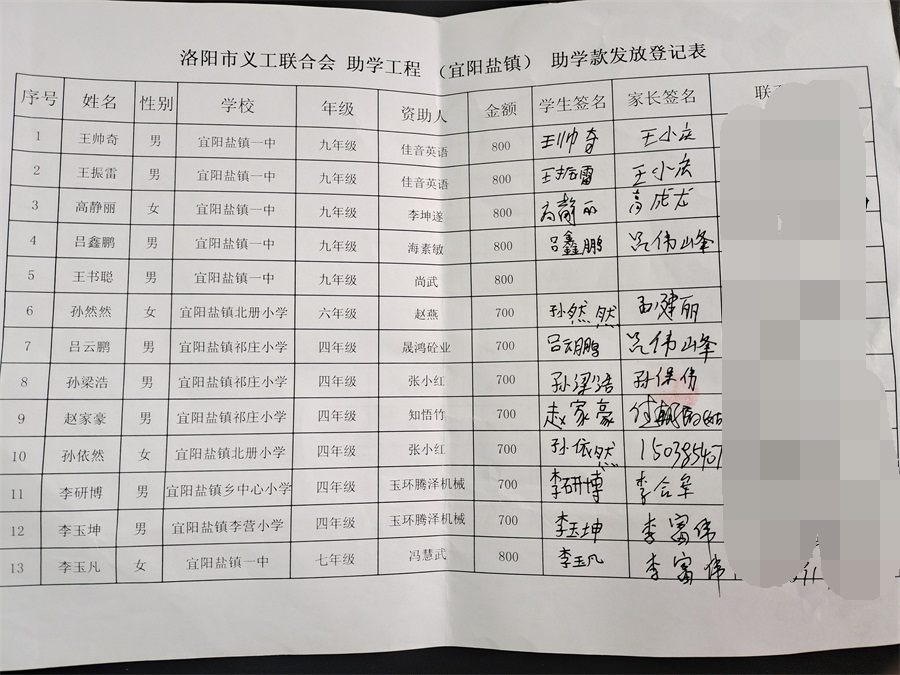 洛阳市义工联合会 助学工程 （宜阳盐镇） 助学款发放登记表
序号 姓名 性别 学校 年级 资助人 金额 学生签名 家长签名 联
1 王帅奇 男 宜阳盐镇一中 九年级 佳音英语 800 王帅奇 王小宏
2 王振雷 男 宜阳盐镇一中 九年级 佳音英语 800 王振雷 王小宏
3 高静丽 女 宜阳盐镇一中 九年级 李坤遂 800 高静丽 高成龙
4 吕鑫鹏 男 宜阳盐镇一中 九年级 海素敏 800 吕鑫鹏 吕伟峰
5 王书聪 男 宜阳盐镇一中 九年级 尚武 800
6 孙然然 女 宜阳盐镇北册小学 六年级 赵燕 700 孙然然 建丽
7 吕云鹏 男 宜阳盐镇祁庄小学 四年级 晟鸿砼业 700 吕云鹏 吕伟峰
8 孙梁浩 男 宜阳盐镇祁庄小学 四年级 张小红 700 孙梁浩 孙保伟
9 赵家豪 男 宜阳盐镇祁庄小学 四年级 知悟竹 700 赵家豪
10 孙依然 女 宜阳盐镇北册小学 四年级 张小红 700 孙依然 150385407
11 李研博 男 宜阳盐镇乡中心小学 四年级 玉环腾泽机械 700 李研博 李合军
12 李玉坤 男 宜阳盐镇李营小学 四年级 玉环腾泽机械 700 李玉坤 李富伟
13 李玉凡 女 宜阳盐镇一中 七年级 冯慧武 800 李玉凡 李富伟